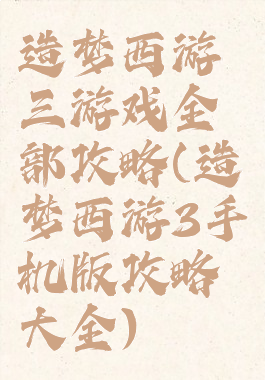 造梦西游
三游戏全
部攻略(造
梦西游3手
机版攻略
大全)